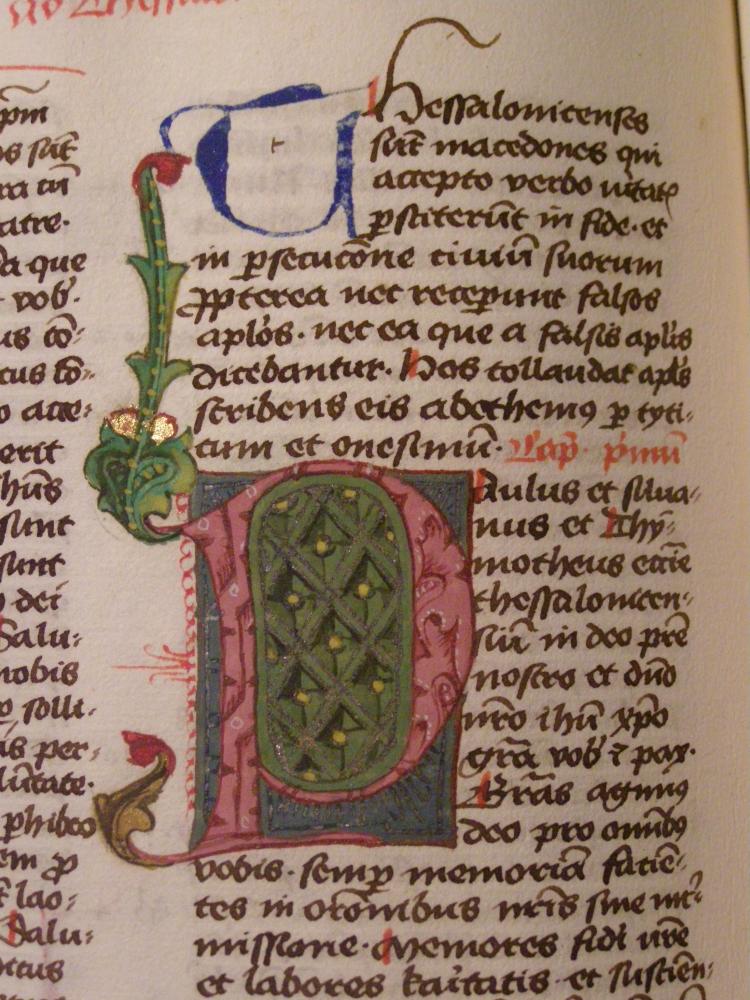 ad Thessa
p̄m
os su͞t
ra cu͞
atre·
a que
vob'·
us co͞:
cus co͞:
o acce:
erit
ihu͞s
sunt
sunt
dei
Salu:
nobis
p̱ solli:
is per:
lu͞tate·
philo
em p̱
lao:
Salu:
ctus
Thessalonicenses
su͞t macedones qui
accepto verbo u͞itat̄
p̱stiteru͞t in fide· et
in p̱secuco͞ne ciuiu͞ suorum
p̄pterea nec recep̱unt falsos
aplo͞s· nec ea que a falsis apl͞is
dicebantur· Hos collaudat apl͞s
scribens eis abethemꝰ p̱ tyti:
cum et onesimu͞· Cap̄· p̄mu͞
Paulus et silua:
nus et Thy:
motheus eccl͞ie
thessalonicen:
siu͞ in deo pr͞e
nostro et dn͞o
nr͞o ihu͞ xp͞o
gr͞a vob' ⁊ pax·
Gra͞s agimꝰ
deo pro omibꝰ
vobis· semp̱ memoria͞ facie͞:
tes in oro͞nibus nr͞is sine int̄:
missione· Memores fidi͞ vr͞e
et labores ka͞itatis· et sustien: